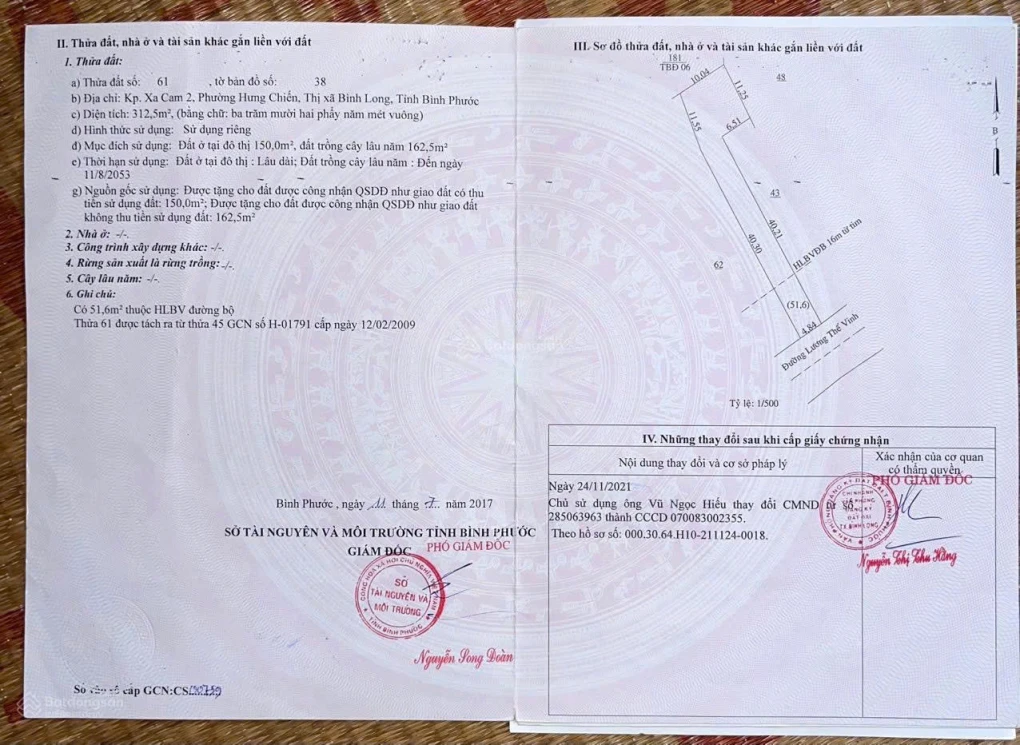 II. Thửa đất, nhà ở và tài sản khác gắn liền với đất
1. Thửa đất:
a) Thửa đất số: 61 , tờ bản đồ số: 38
b) Địa chỉ: Kp. Xa Cam 2, Phường Hưng Chiến, Thị xã Bình Long, Tỉnh Bình Phước
c) Diện tích: 312,5m², (bằng chữ: ba trăm mười hai phẩy năm mét vuông)
d) Hình thức sử dụng: Sử dụng riêng
đ) Mục đích sử dụng: Đất ở tại đô thị 150,0m², đất trồng cây lâu năm 162,5m²
e) Thời hạn sử dụng: Đất ở tại đô thị : Lâu dài; Đất trồng cây lâu năm : Đến ngày
11/8/2053
g) Nguồn gốc sử dụng: Được tặng cho đất được công nhận QSDĐ như giao đất có thu
tiền sử dụng đất: 150,0m²; Được tặng cho đất được công nhận QSDĐ như giao đất
không thu tiền sử dụng đất: 162,5m²
2. Nhà ở: -/-.
3. Công trình xây dựng khác: -/-.
4. Rừng sản xuất là rừng trồng: -/-.
5. Cây lâu năm: -/-.
6. Ghi chú:
Có 51,6m² thuộc HLBV đường bộ
Thửa 61 được tách ra từ thửa 45 GCN số H-01791 cấp ngày 12/02/2009
Bình Phước , ngày 11 tháng 7 năm 2017
SỞ TÀI NGUYÊN VÀ MÔI TRƯỜNG TỈNH BÌNH PHƯỚC
GIÁM ĐỐC PHÓ GIÁM ĐỐC
CỘNG HÒA XÃ HỘI CHỦ NGHĨA VIỆT NAM
SỞ
TÀI NGUYÊN VÀ
MÔI TRƯỜNG
TỈNH BÌNH PHƯỚC
Nguyễn Song Đoàn
Số vào sổ cấp GCN:CS
Batdongsan
III. Sơ đồ thửa đất, nhà ở và tài sản khác gắn liền với đất
181
TBĐ 06
10,04
48
11,25
11,55
6,51
B
43
40,21
40,30
62
HLBVĐB 16m từ tim
(51,6)
4,84
Đường Lương Thế Vinh
Tỷ lệ: 1/500
IV. Những thay đổi sau khi cấp giấy chứng nhận
Nội dung thay đổi và cơ sở pháp lý
Xác nhận của cơ quan
có thẩm quyền
PHÓ GIÁM ĐỐC
Ngày 24/11/2021
Chủ sử dụng ông Vũ Ngọc Hiếu thay đổi CMND từ số
285063963 thành CCCD 070083002355.
Theo hồ sơ số: 000.30.64.H10-211124-0018.
CHI NHÁNH
VĂN PHÒNG
ĐĂNG KÝ
ĐẤT ĐAI
TX.BÌNH LONG
Nguyễn Thị Thu Hằng